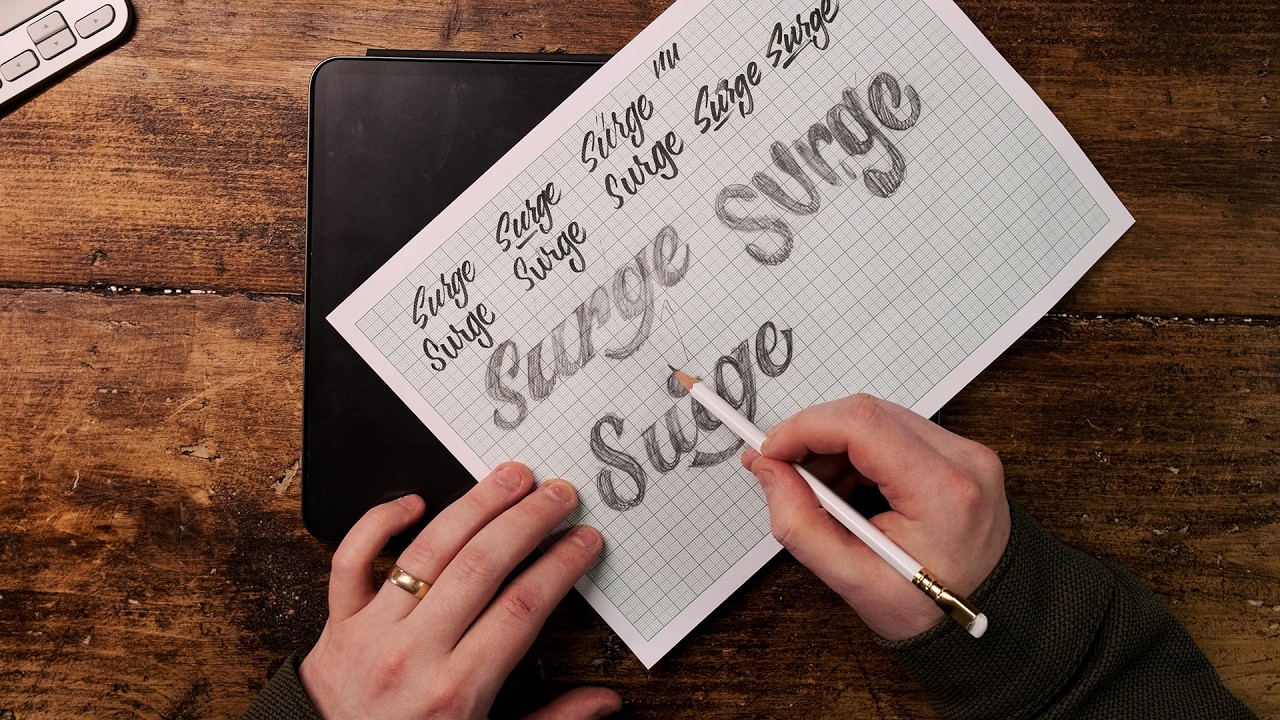 Surge Surge Surge
Surge Surge Surge Surge Surge
Surge Surge
Surge